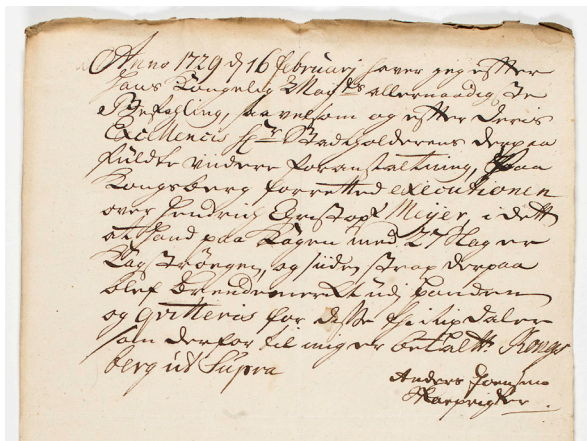 Anno 1729 d 16 februarj haver jeg efter
Hans Kongelig Mayts allernaadigste
Befehling, saavelsom og efter Deris
Excellencis Hr Stadholderens derpaa
fuldte viidere foranstaltning, paa
Kongsberg forretted executionen
over Hendrich Christoph Meijer, i dett
at hand paa Kagen med 27 Slag er
Kagströgen, og siiden strax derpaa
blef brendemerckt ud panden
og qvitteris for disse daler
som derfor til mig er betalt. Kongs
berg ut Supra
Anders
Skarprigter